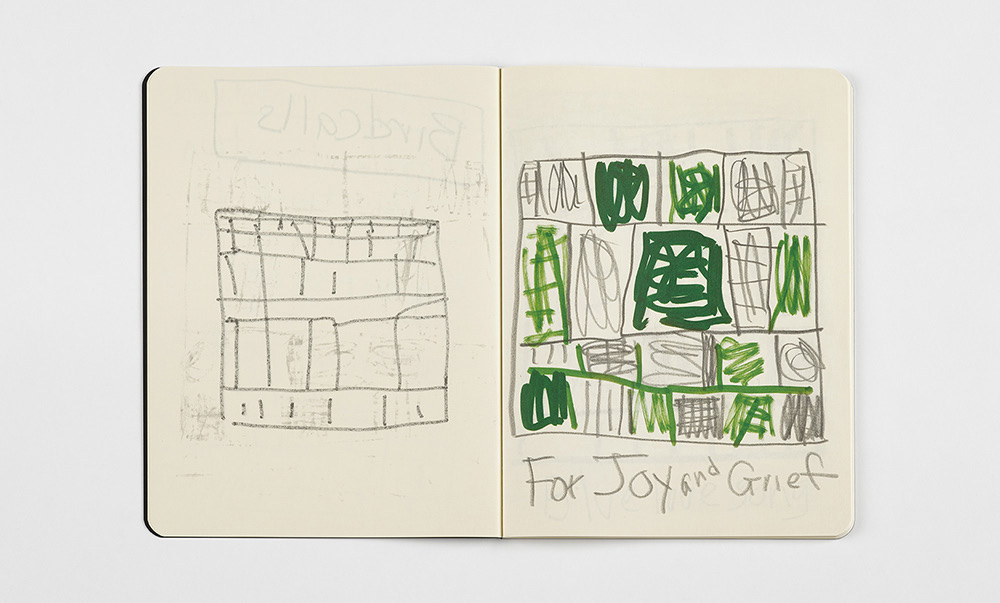 Birdcalls
For Joy and Grief